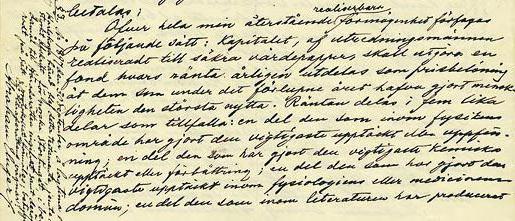 betalas;
realiserbara
Öfver hela min återstående förmögenhet förfogas
på följande sätt: Kapitalet, af utredningsmännen
realiseradt till säkra värdepapper, skall utgöra en
fond hvars ränta årligen utdelas som prisbelöning
åt dem som under det förlupne året hafva gjort mensk-
ligheten den största nytta. Räntan delas i fem lika
delar som tillfalla: en del den som inom fysikens
område har gjort den vigtigaste upptäckt eller uppfin-
ning; en del den som har gjort den vigtigaste kemiska
upptäckt eller förbättring; en del den som har gjort den
vigtigaste upptäckt inom fysiologiens eller medicinens
domän; en del den som inom literaturen har producerat